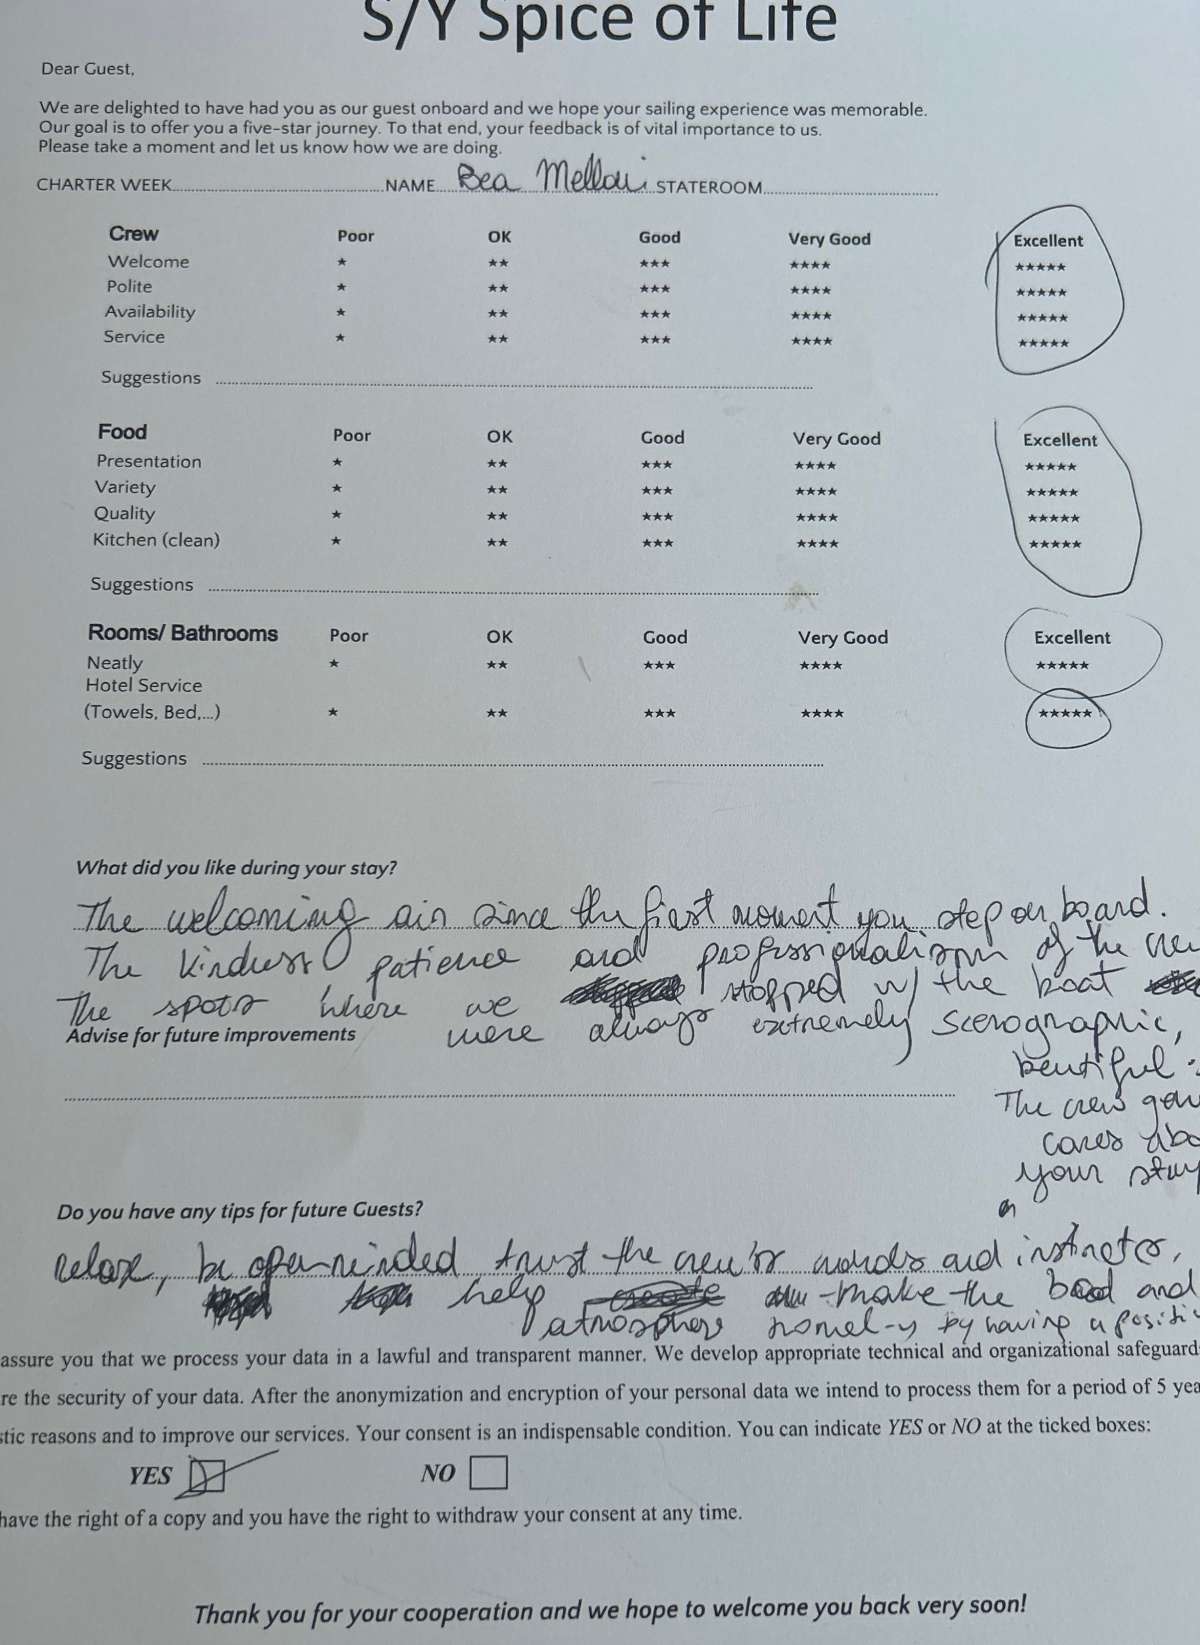 S/Y Spice of Life
Dear Guest,
We are delighted to have had you as our guest onboard and we hope your sailing experience was memorable.
Our goal is to offer you a five-star journey. To that end, your feedback is of vital importance to us.
Please take a moment and let us know how we are doing.
CHARTER WEEK NAME Bea STATEROOM
Crew Poor OK Good Very Good Excellent
Welcome ★ ★★ ★★★ ★★★★ ★★★★★
Polite ★ ★★ ★★★ ★★★★ ★★★★★
Availability ★ ★★ ★★★ ★★★★ ★★★★★
Service ★ ★★ ★★★ ★★★★ ★★★★★
Suggestions
Food Poor OK Good Very Good Excellent
Presentation ★ ★★ ★★★ ★★★★ ★★★★★
Variety ★ ★★ ★★★ ★★★★ ★★★★★
Quality ★ ★★ ★★★ ★★★★ ★★★★★
Kitchen (clean) ★ ★★ ★★★ ★★★★ ★★★★★
Suggestions
Rooms/ Bathrooms Poor OK Good Very Good Excellent
Neatly ★ ★★ ★★★ ★★★★ ★★★★★
Hotel Service
(Towels, Bed,...) ★ ★★ ★★★ ★★★★ ★★★★★
Suggestions
What did you like during your stay?
The welcoming air since the first moment you step on board.
The kindness patience and professionalism of the
The spots where we stopped w/ the boat
were always extremely scenographic,
Advise for future improvements
beautiful
The crew
cares
your
Do you have any tips for future Guests?
relax, be open-minded trust the crew's words and
help make the and
atmosphere by having a
assure you that we process your data in a lawful and transparent manner. We develop appropriate technical and organizational
the security of your data. After the anonymization and encryption of your personal data we intend to process them for a period of 5
reasons and to improve our services. Your consent is an indispensable condition. You can indicate YES or NO at the ticked boxes:
YES NO
have the right of a copy and you have the right to withdraw your consent at any time.
Thank you for your cooperation and we hope to welcome you back very soon!